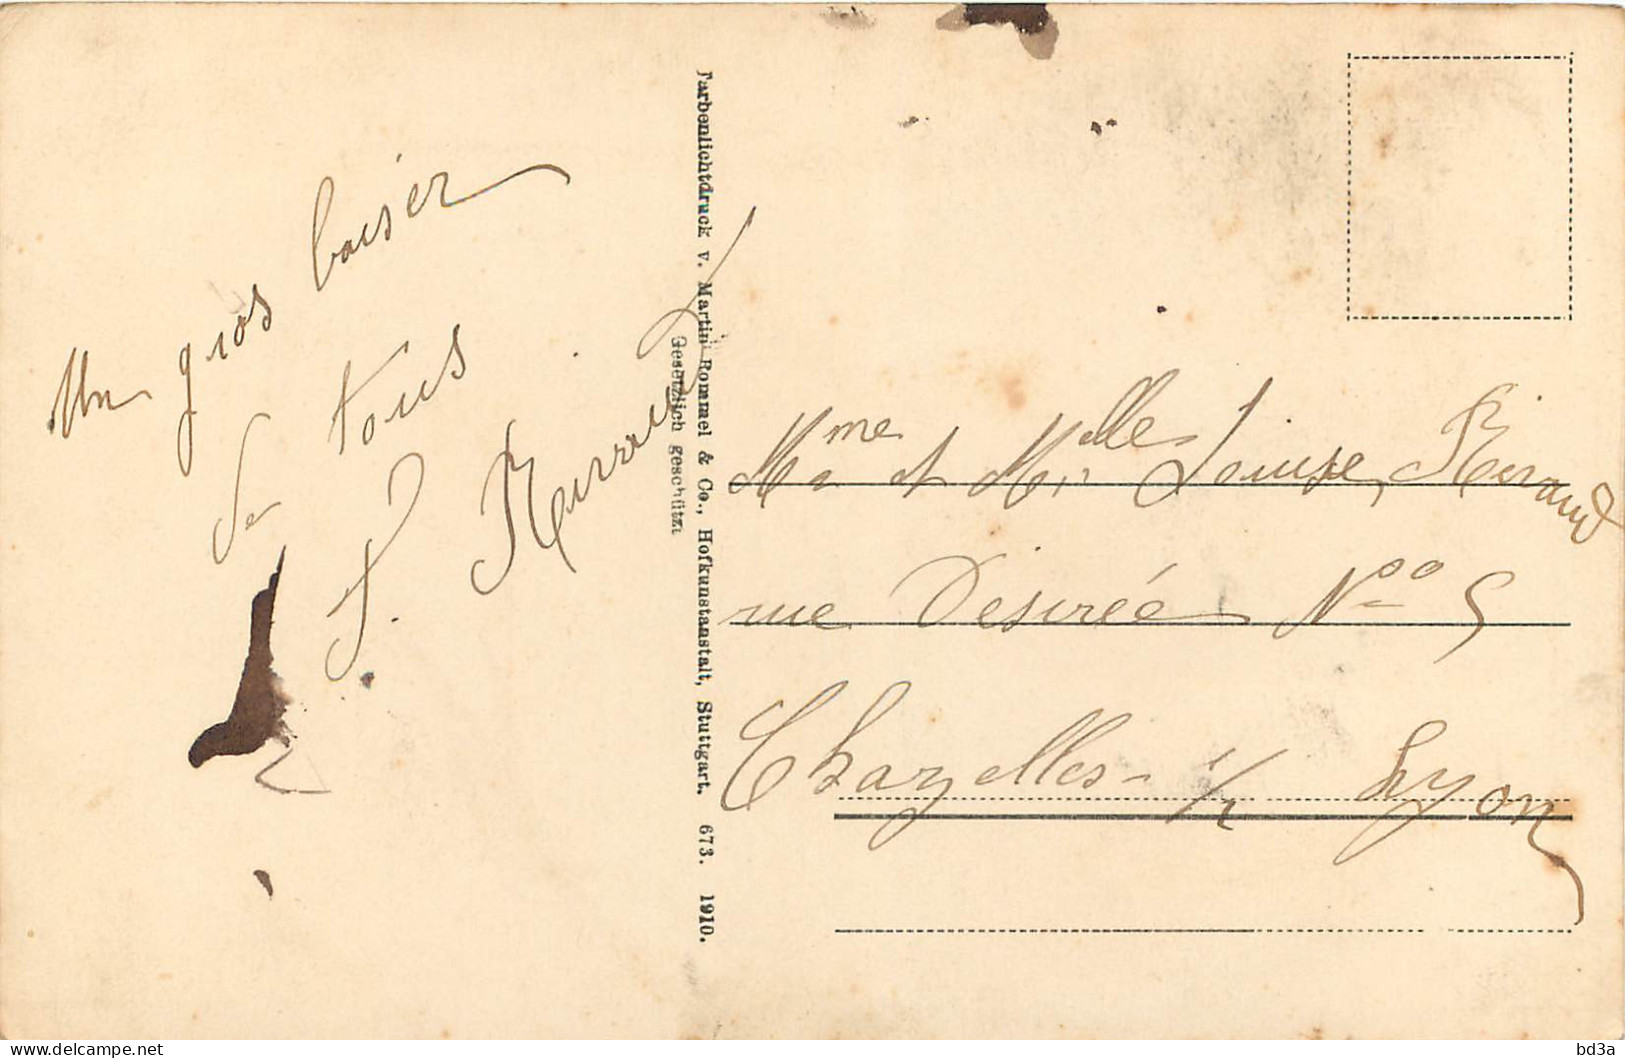 Un gros baiser
de tous
Farbenlichtdruck v. Martin Rommel & Co., Hofkunstanstalt, Stuttgart. 673. 1910.
Gesetzlich geschützt
Mme et Mlle Louise
rue Desirée No 5
Chazelles- s/ Lyon
bd3a